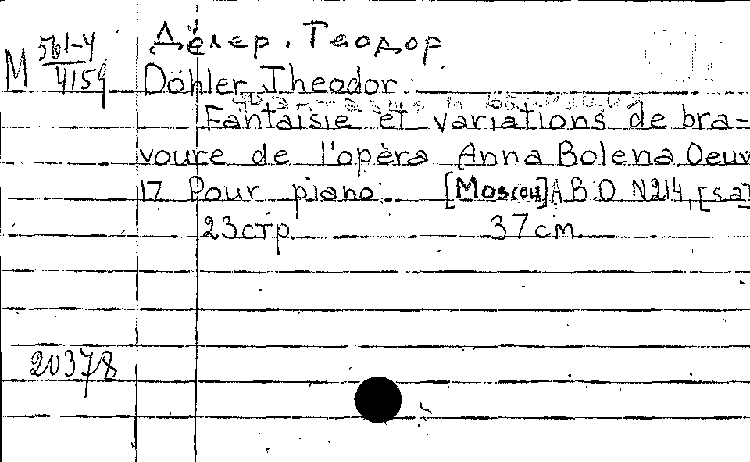 М 561-4/4154
Дёлер, Теодор.
Döhler, Theodor.
Fantaisie et variations de bra=
voure de l'opèra Anna Bolena. Oeuv
17. Pour piano. [Moscou] A B O N214, [s.a]
23стр. 37cm.
20378